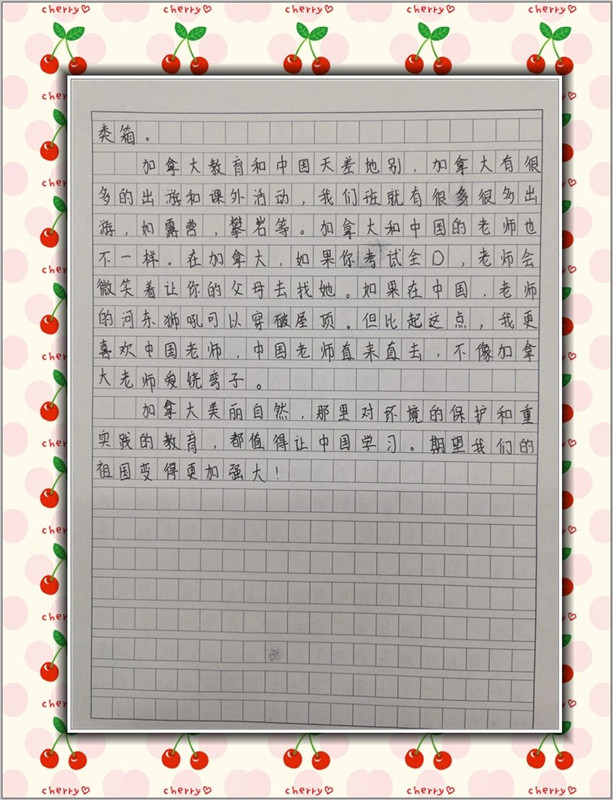 cherry cherry cherry cherry cherry
类箱。
加拿大教育和中国天差地别，加拿大有很
多的出游和课外活动，我们班就有很多很多出
游，如露营，攀岩等。加拿大和中国的老师也
不一样。在加拿大，如果你考试全D，老师会
微笑着让你的父母去找她。如果在中国，老师
的河东狮吼可以穿破屋顶。但比起这点，我更
喜欢中国老师，中国老师直来直去，不像加拿
大老师爱绕弯子。
加拿大美丽自然，那里对环境的保护和重
实践的教育，都值得让中国学习。期望我们的
祖国变得更加强大！
cherry cherry cherry cherry cherry